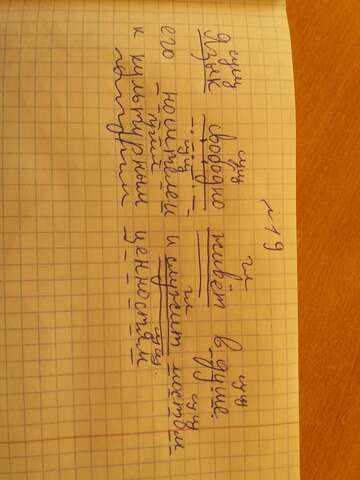 №19
сущ сущ гл сущ
Язык свободно живёт в душе
сущ гл сущ
его носителей и служит мостом
прил сущ.
к культурным ценностям